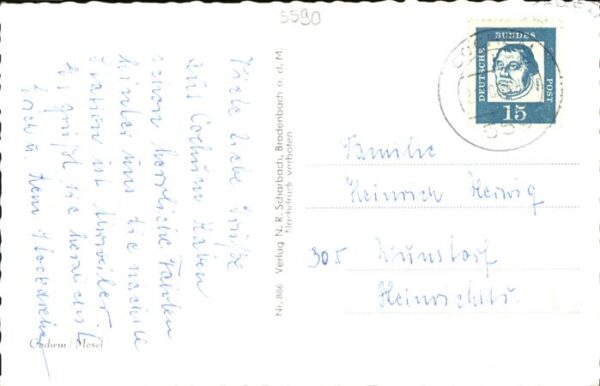 5590
DEUTSCHE
BUNDES
POST
15
Viele liebe Grüße
aus Cochem haben
schon herrliche Fahrten
hinter uns die nächste
Station ist
Es grüßt sie herzlichst
Cochem / Mosel
Nr. 886 Verlag N. R. Scharbach, Brodenbach a. d. M.
Nachdruck verboten
Familie
Heinrich Herwig
305 Wunstorf
Heinrichstr.